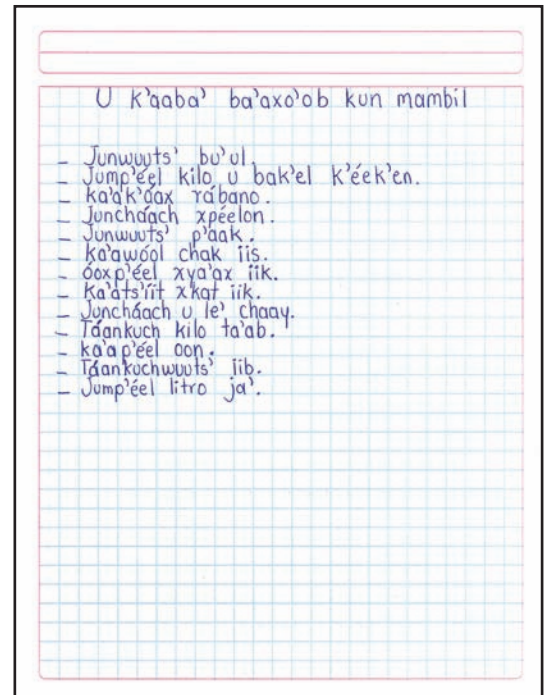 U k'aaba' ba'axo'ob kun mambil
- Junwuuts' bu'ul.
- Jump'éel kilo u bak'el k'éek'en.
- ka'ak'áax rábano.
- Juncháach xpéelon.
- Junwuuts' p'aak.
- ka'awóol chak iis.
- óoxp'éel xya'ax iik.
- Ka'ats'íit x'kat iik.
- Juncháach u le' chaay.
- Táankuch kilo ta'ab.
- ka'ap'éel oon.
- Táankuchwuuts' iib.
- Jump'éel litro ja'.